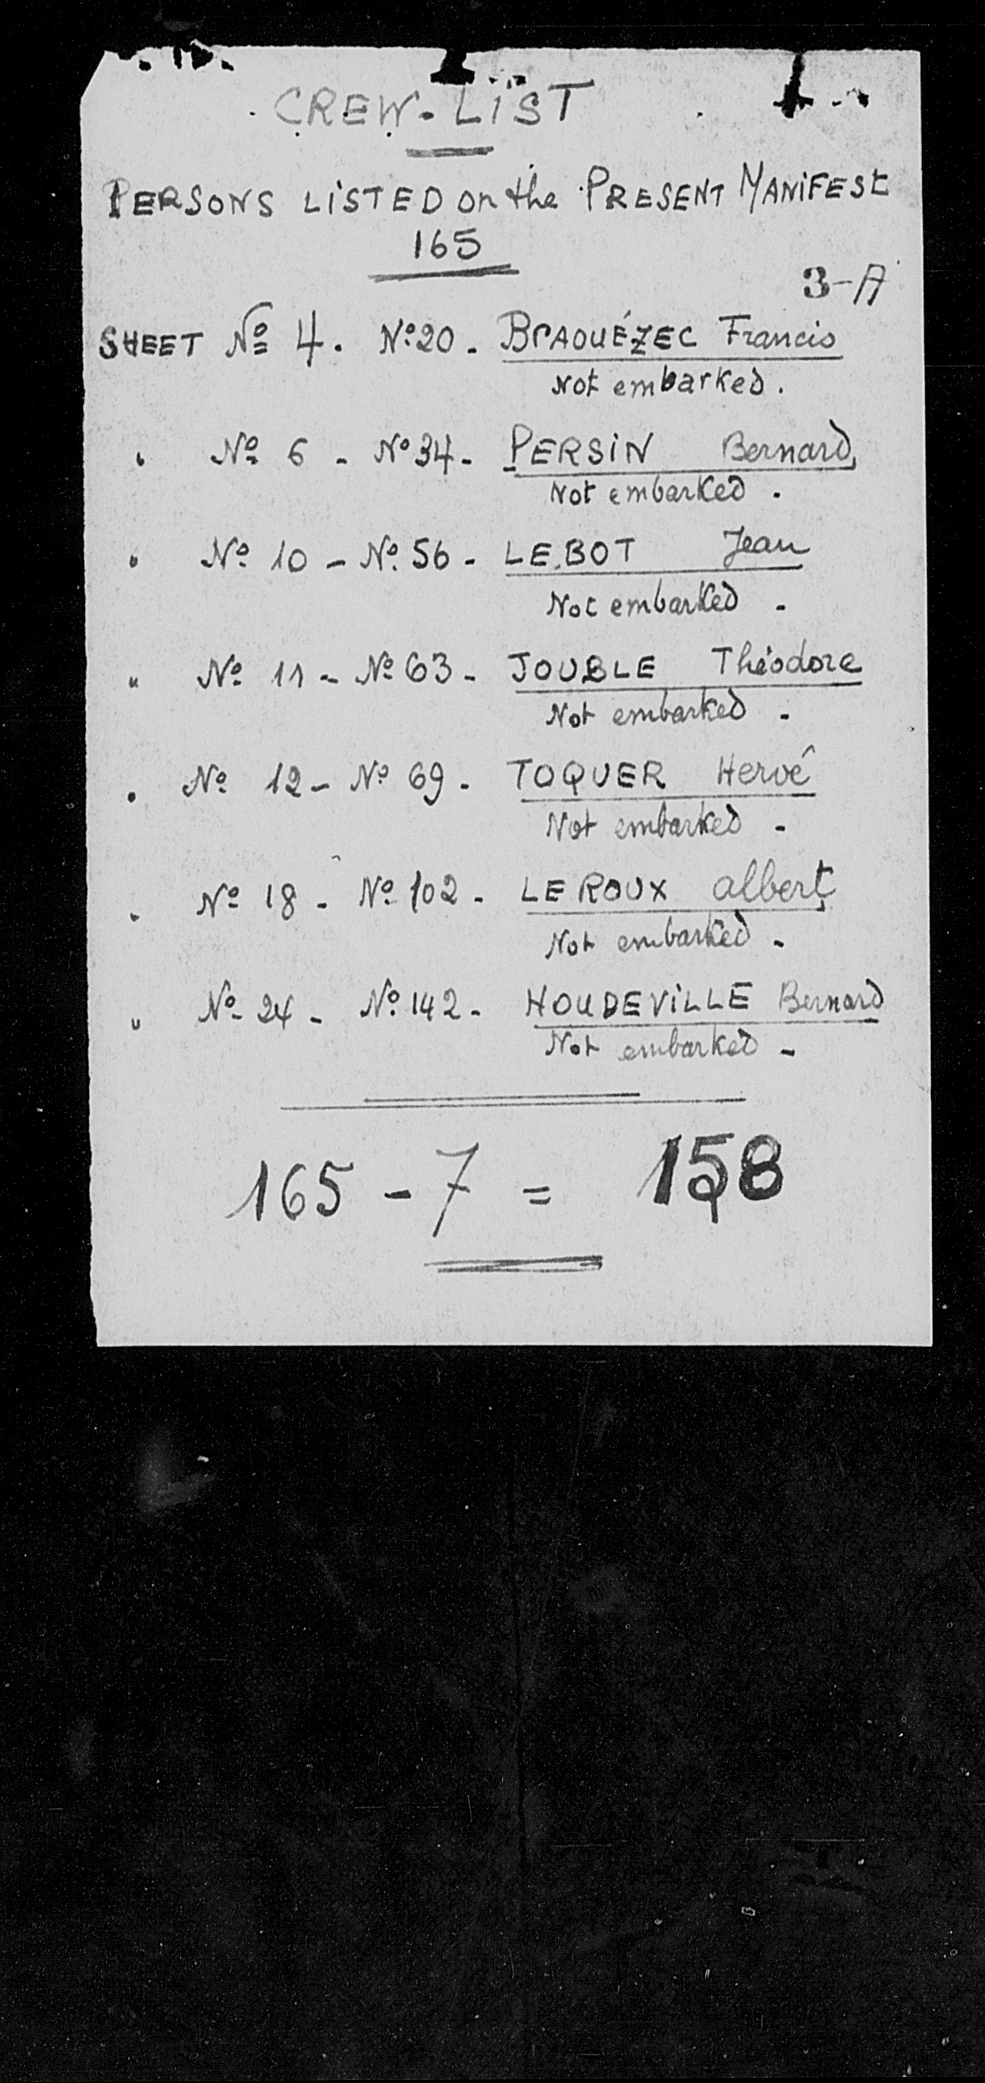 CREW-LIST
PERSONS LISTED on the PRESENT MANIFEST
165
3-A
SHEET No 4. No 20 - BRAOUÉZEC Francis
Not embarked.
" No 6 - No 34 - PERSIN Bernard
Not embarked.
" No 10 - No 56 - LE BOT Jean
Not embarked -
" No 11 - No 63 - JOUBLE Théodore
Not embarked -
" No 12 - No 69 - TOQUER Hervé
Not embarked -
" No 18 - No 102 - LE ROUX Albert
Not embarked -
" No 24 - No 142 - HOUDEVILLE Bernard
Not embarked -
165 - 7 = 158